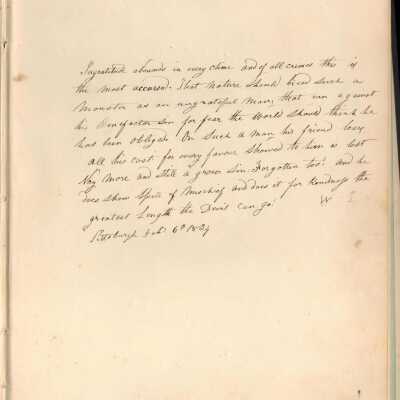 Ingratitude abounds in every clime and of all crimes this is
the most accursed. That Nature should breed such a
Monster as an ungrateful Man, that can against
his Benefactor Sin for fear the World should think he
has been obliged. On Such a Man his friend loses
all his cost for every favour Showed to him is lost
Nay More and Still a greater Sin. Forgotten too! and he
does show Spite of Mischief and does it for Kindness the
greatest Length the Devil can go!
W
Pittsburgh Feb. 6th